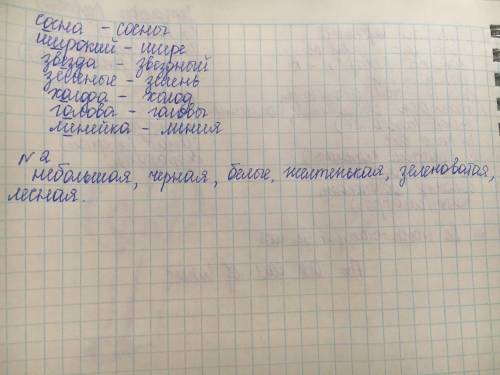 сосна - сосны
широкий - шире
звезда - звездный
зеленые - зелень
холода - холод
голова - головы
линейка - линия
№2
небольшая, черная, белые, желтенькая, зеленоватая,
лесная.